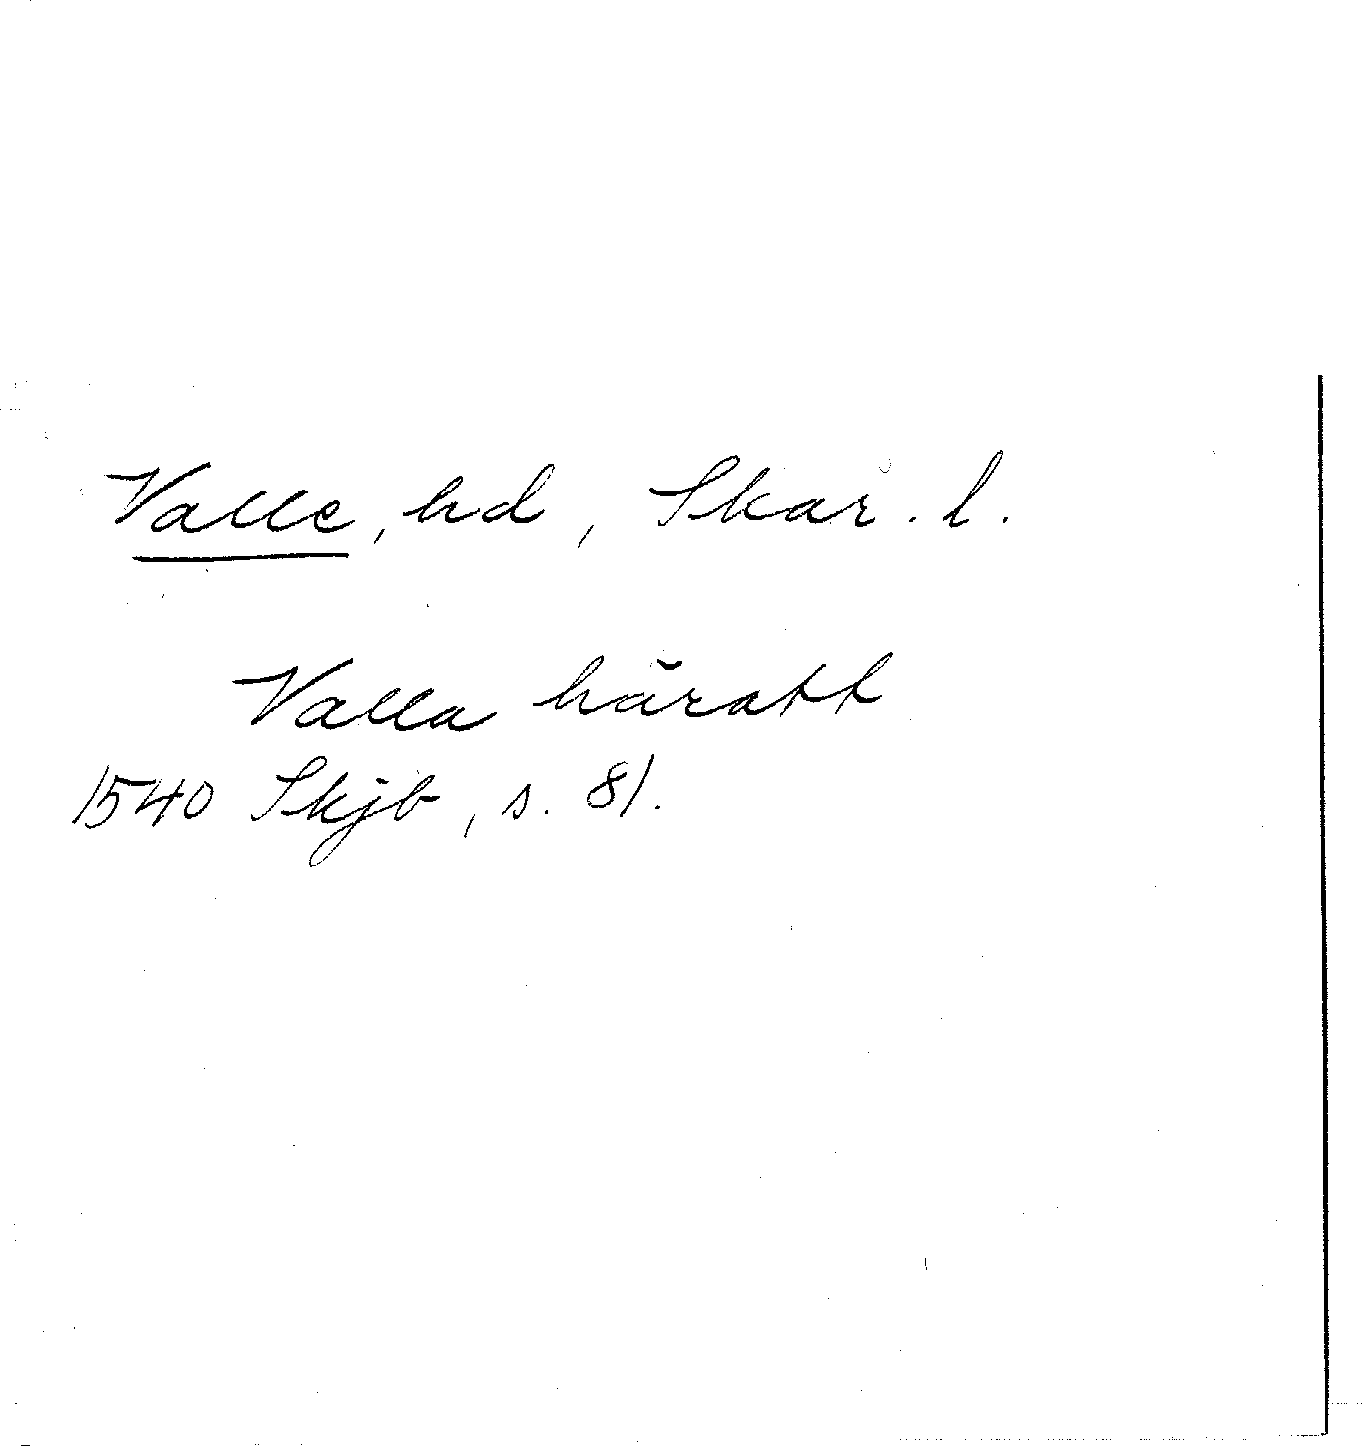 Valle, hd, Skar. l.
Valla häratt
1540 Skjb, s. 81.